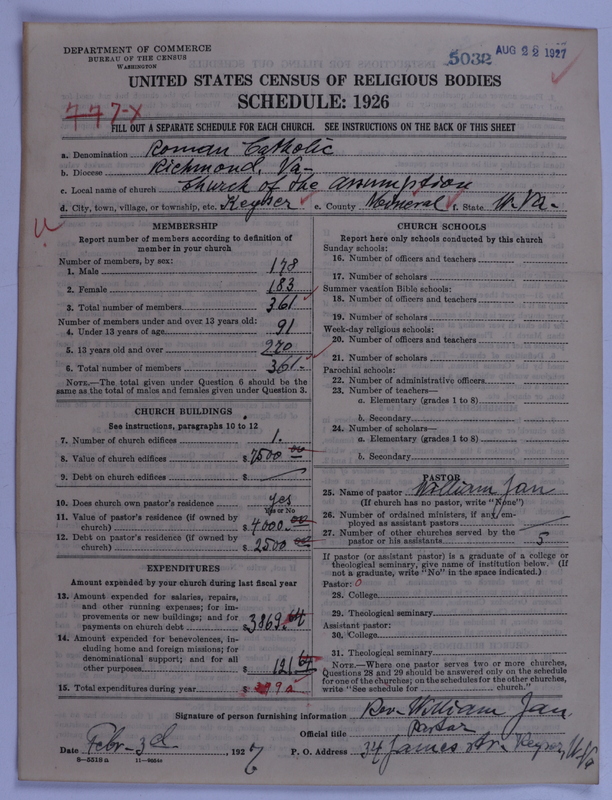 DEPARTMENT OF COMMERCE
BUREAU OF THE CENSUS
WASHINGTON
5032
AUG 22 1927
UNITED STATES CENSUS OF RELIGIOUS BODIES
SCHEDULE: 1926
777-x
FILL OUT A SEPARATE SCHEDULE FOR EACH CHURCH. SEE INSTRUCTIONS ON THE BACK OF THIS SHEET
a. Denomination Roman Catholic
b. Diocese Richmond, Va-
c. Local name of church Church of the Assumption
d. City, town, village, or township, etc. Keyser e. County Mineral f. State W. Va.
MEMBERSHIP
Report number of members according to definition of member in your church
Number of members, by sex:
1. Male 178
2. Female 183
3. Total number of members 361
Number of members under and over 13 years old:
4. Under 13 years of age 91
5. 13 years old and over 270
6. Total number of members 361
NOTE.—The total given under Question 6 should be the same as the total of males and females given under Question 3.
CHURCH BUILDINGS
See instructions, paragraphs 10 to 12
7. Number of church edifices 1.
8. Value of church edifices $ 7500 00
9. Debt on church edifices $
10. Does church own pastor's residence yes
Yes or No
11. Value of pastor's residence (if owned by church) $ 4000.00
12. Debt on pastor's residence (if owned by church) $ 2500 00
EXPENDITURES
Amount expended by your church during last fiscal year
13. Amount expended for salaries, repairs, and other running expenses; for improvements or new buildings; and for payments on church debt $ 3869.64
14. Amount expended for benevolences, including home and foreign missions; for denominational support; and for all other purposes $ 121
15. Total expenditures during year $
CHURCH SCHOOLS
Report here only schools conducted by this church
Sunday schools:
16. Number of officers and teachers
17. Number of scholars
Summer vacation Bible schools:
18. Number of officers and teachers
19. Number of scholars
Week-day religious schools:
20. Number of officers and teachers
21. Number of scholars
Parochial schools:
22. Number of administrative officers
23. Number of teachers—
a. Elementary (grades 1 to 8)
b. Secondary
24. Number of scholars—
a. Elementary (grades 1 to 8)
b. Secondary
PASTOR
25. Name of pastor William Jan
(If church has no pastor, write "None")
26. Number of ordained ministers, if any, employed as assistant pastors
27. Number of other churches served by the pastor or his assistants 5
If pastor (or assistant pastor) is a graduate of a college or theological seminary, give name of institution below. (If not a graduate, write "No" in the space indicated.)
Pastor: 0
28. College
29. Theological seminary
Assistant pastor:
30. College
31. Theological seminary
NOTE.—Where one pastor serves two or more churches, Questions 28 and 29 should be answered only on the schedule for one of the churches; on the schedules for the other churches, write "See schedule for church."
Signature of person furnishing information Rev. William Jan.
Official title Pastor
Date Febr- 3d 1927 P. O. Address 34 James Str- Keyser W. Va
8—5518a 11—9054